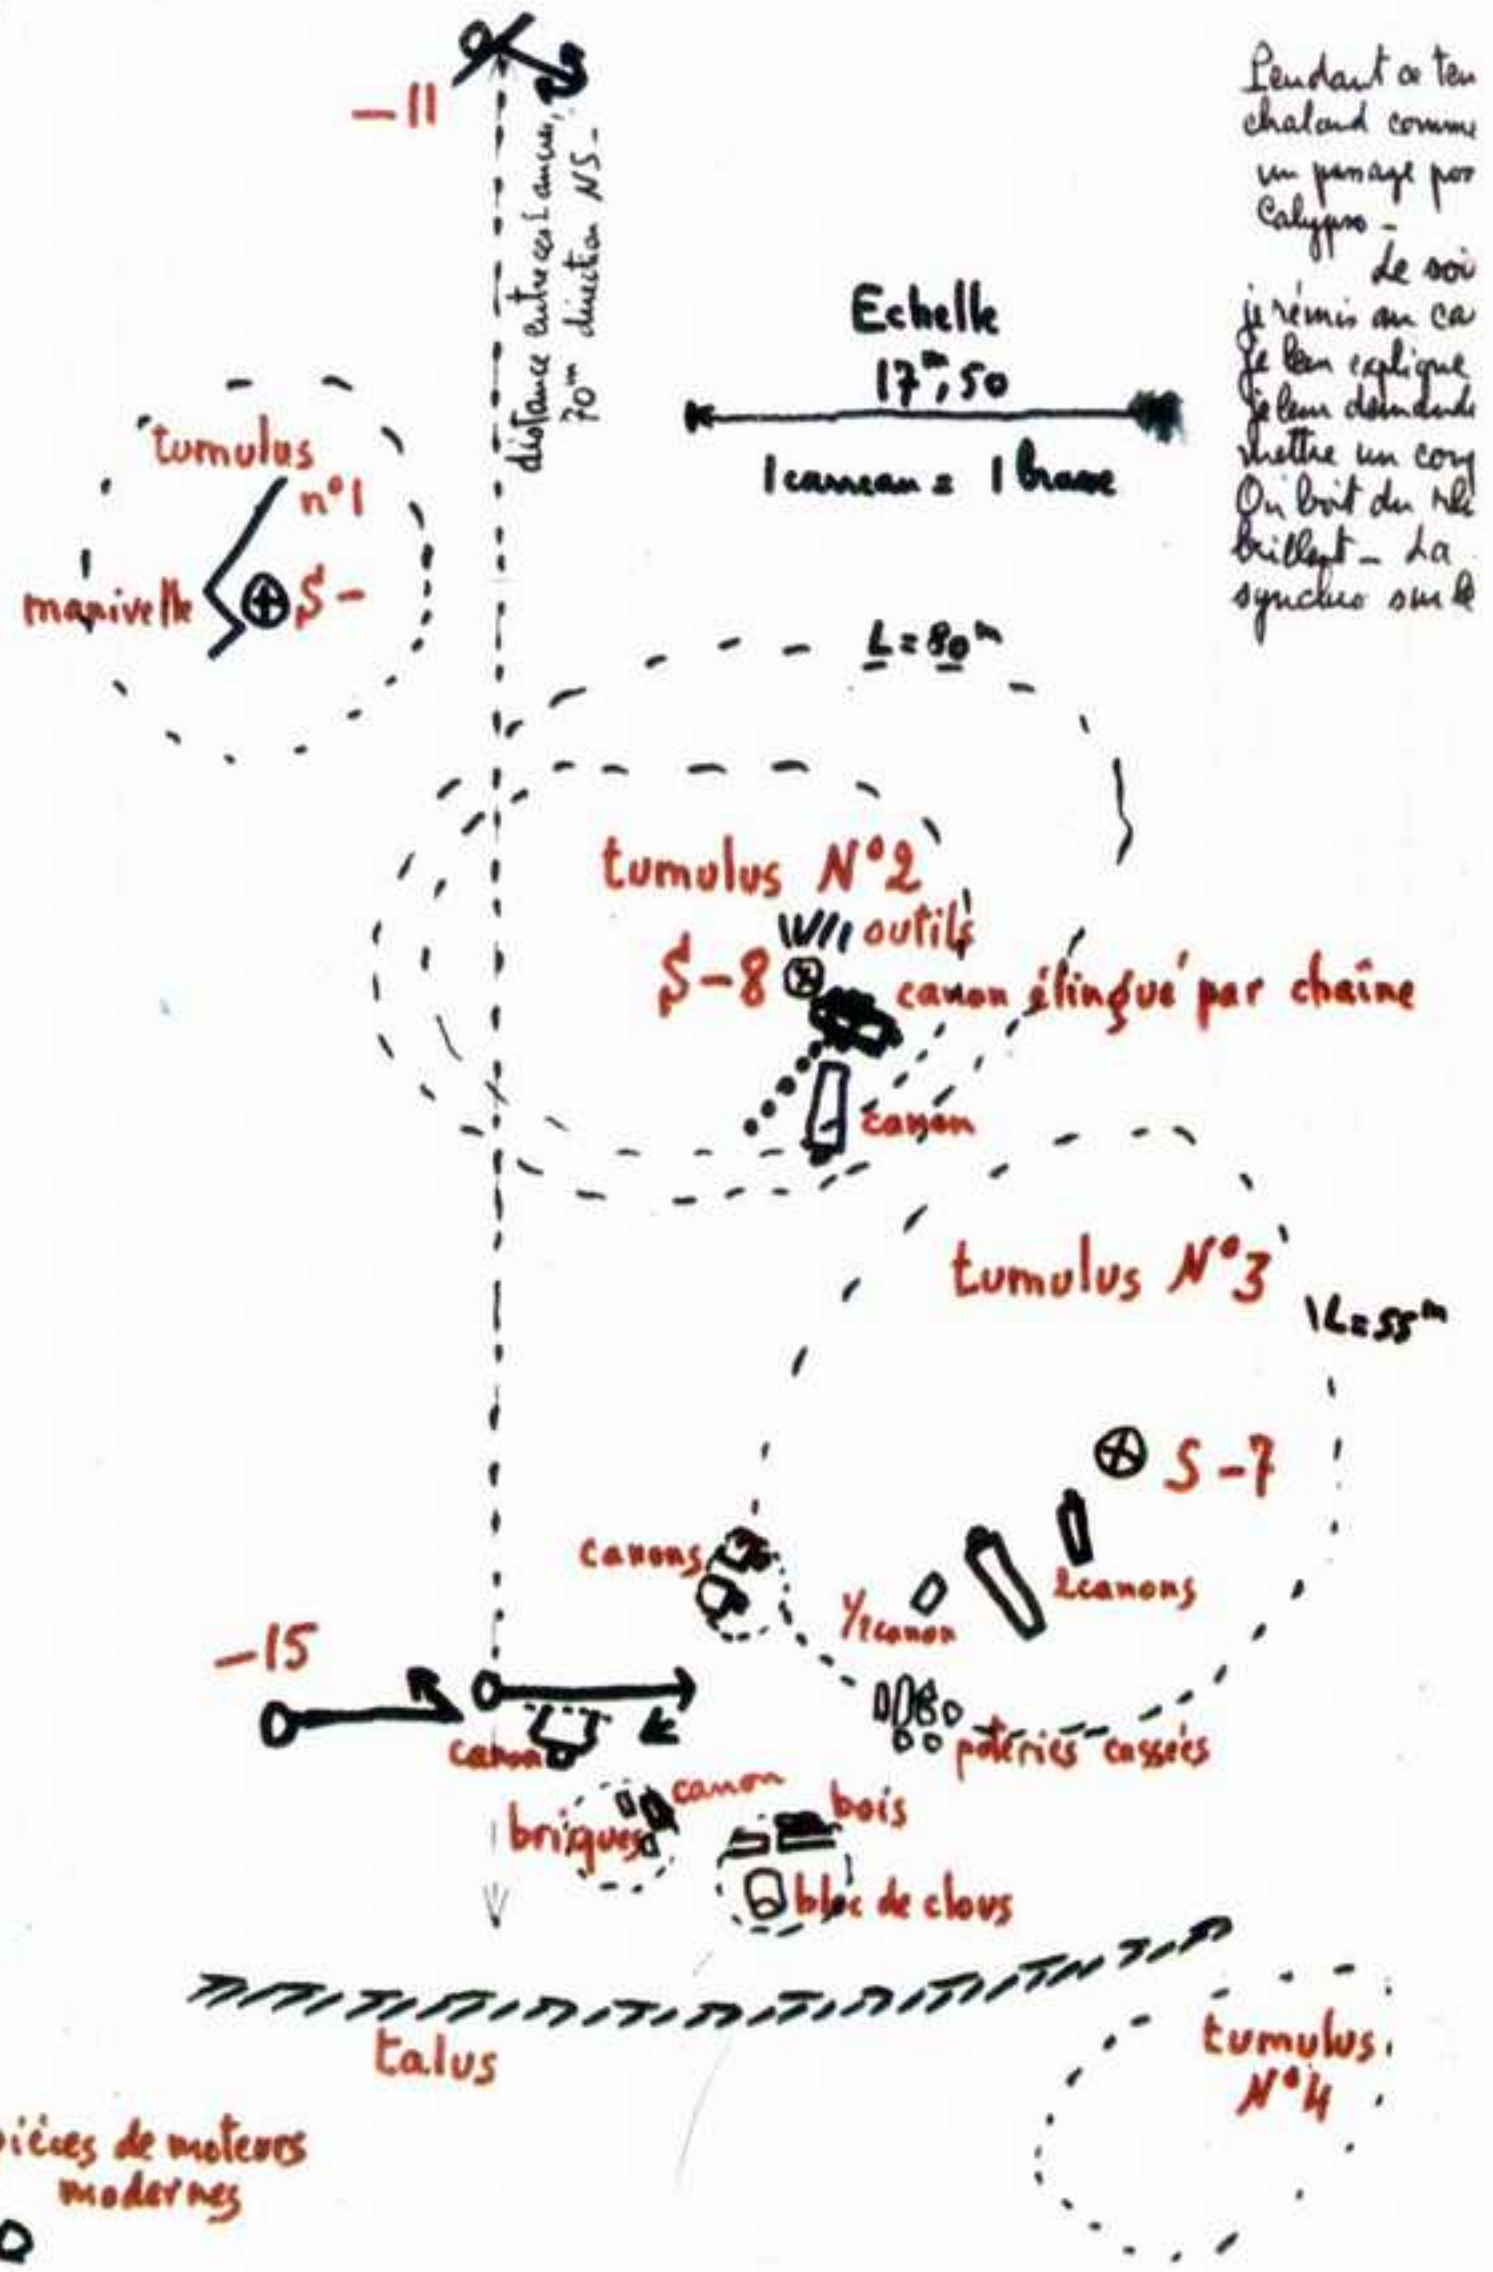 -11
distance entre ces 2 ancres,
70m direction NS-
Pendant ce tem
chaland comme
un passage por
Calypso -
Le soi
je réunis au ca
je leur explique
je leur demande
mettre un
On boit du
brillent - La
synchro sur le
Echelle
17m,50
1 carreau = 1 brasse
tumulus
n°1
manivelle
S-
L=80m
tumulus N°2
outils
S-8
canon élingué par chaîne
canon
tumulus N°3
L=55m
S-7
canons
2canons
1/2canon
-15
canon
poteries cassées
canon
briques
bois
bloc de clous
talus
tumulus
N°4
pièces de moteurs
modernes